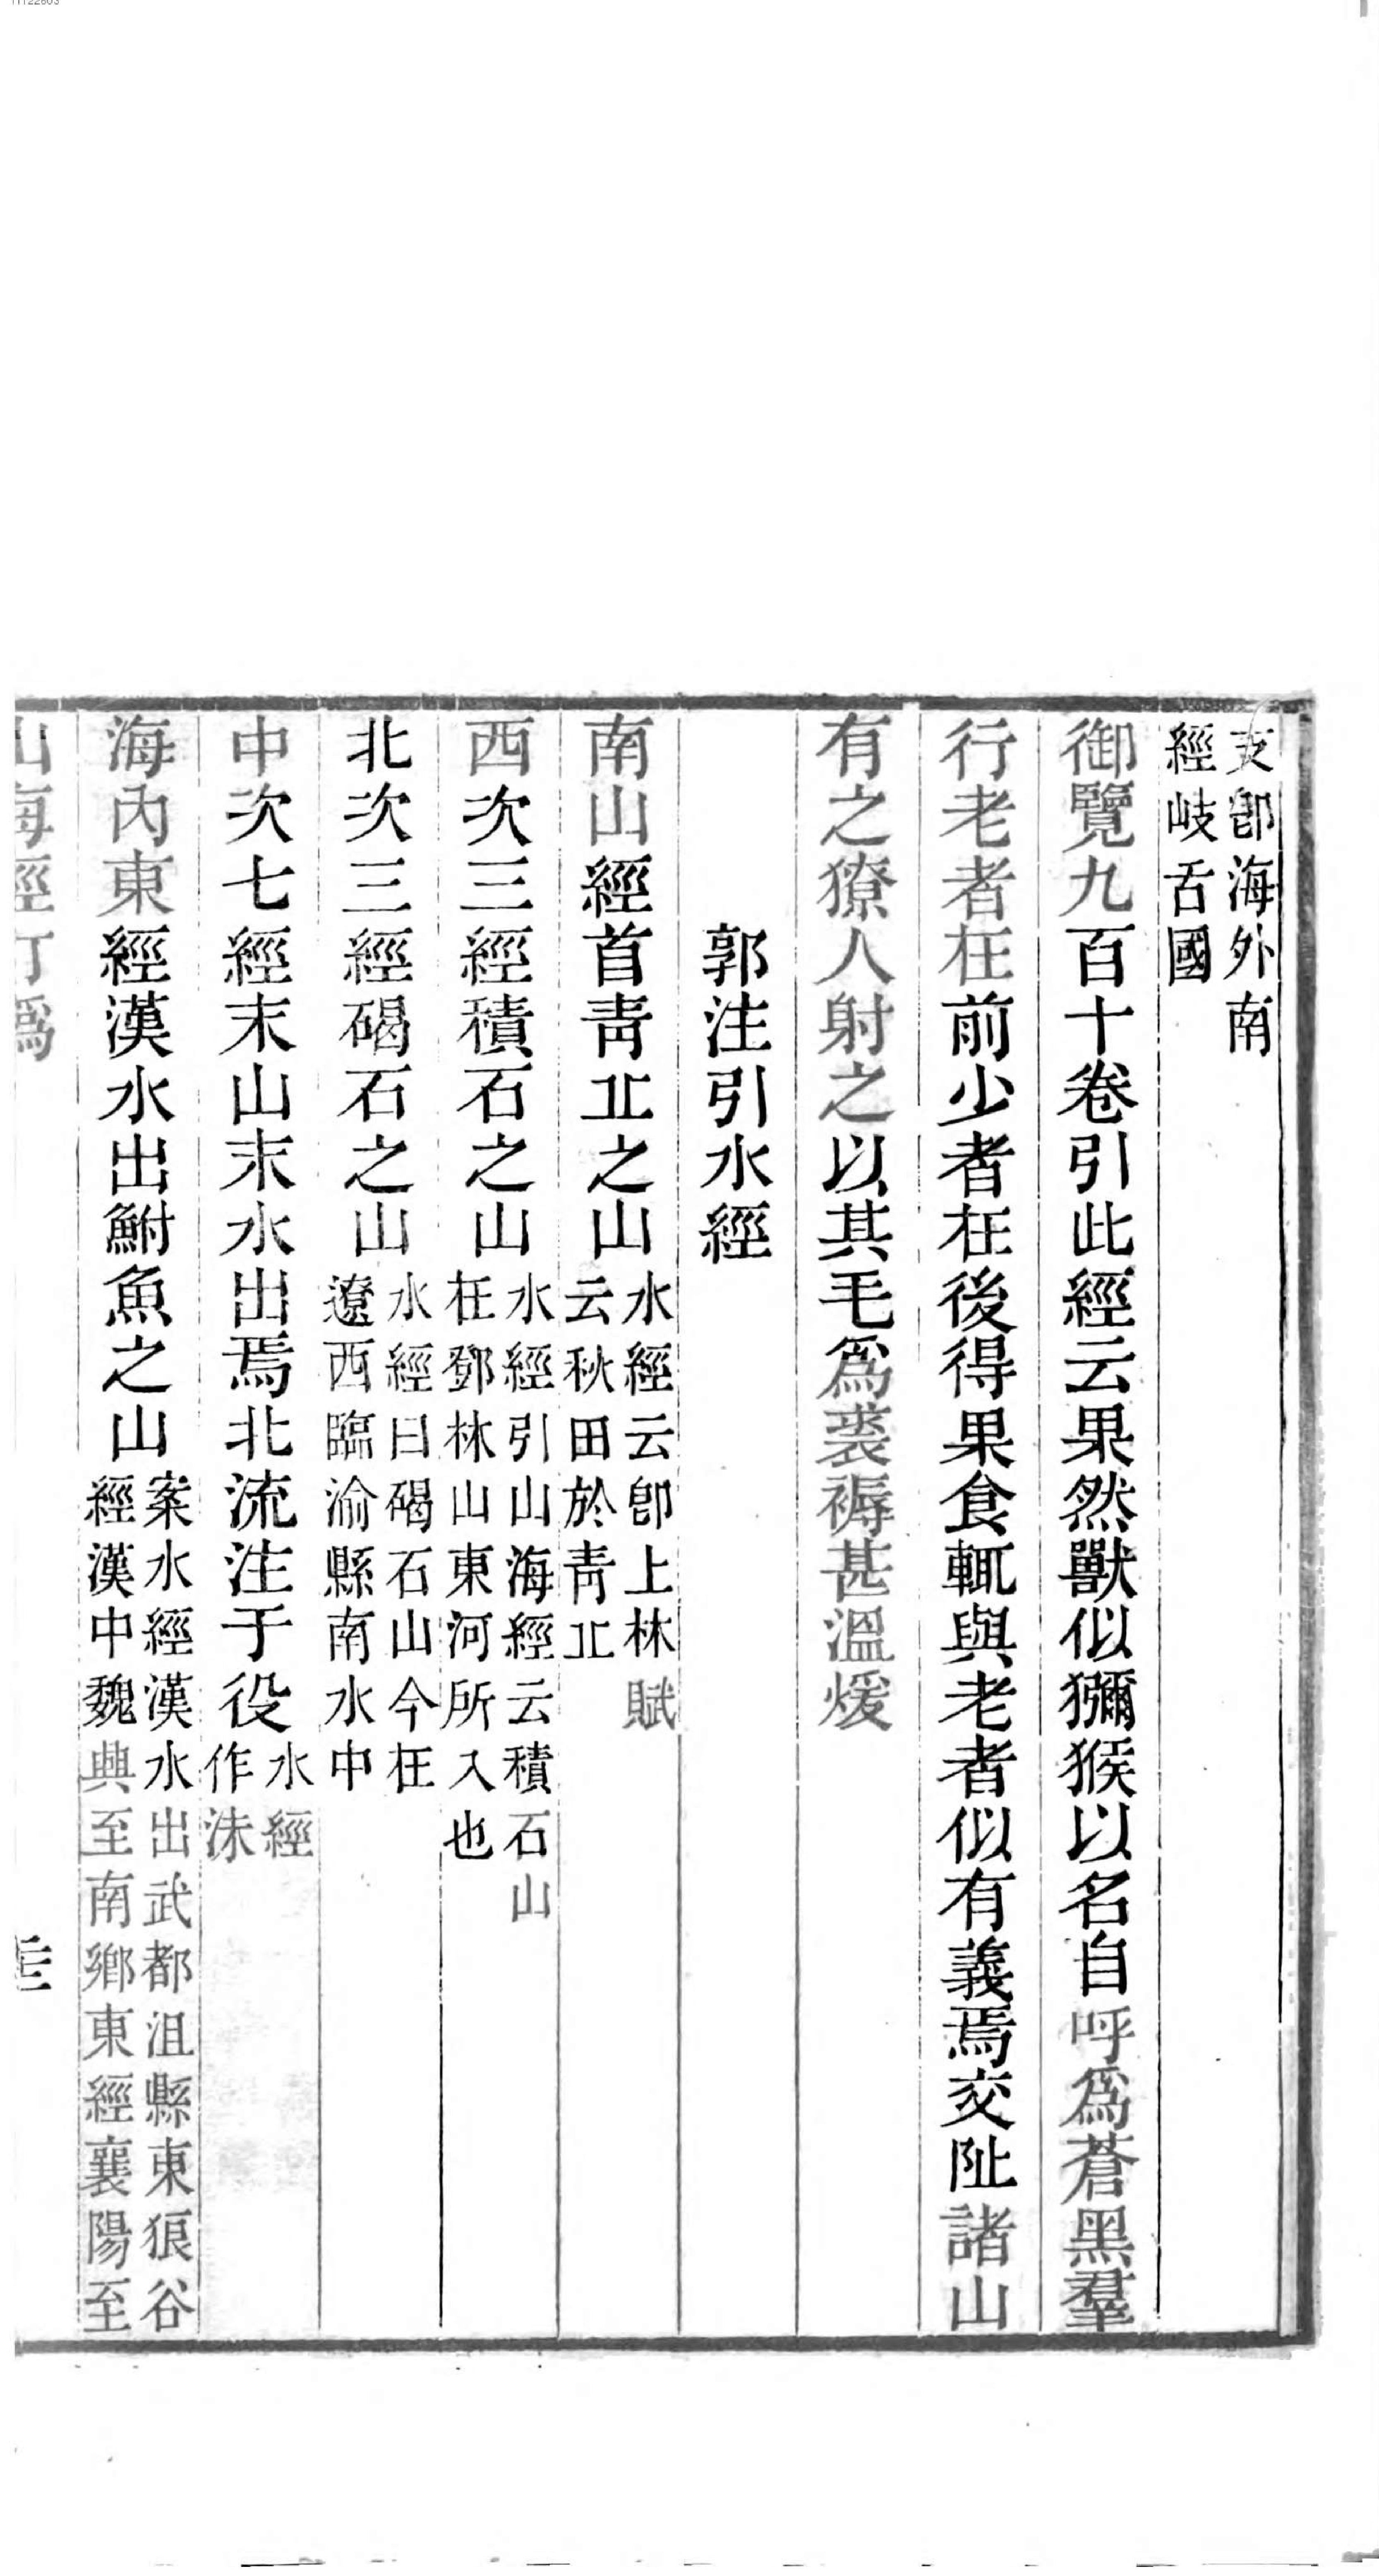 支卽海外南
經岐舌國
御覽九百十卷引此經云果然獸似獼猴以名自呼爲蒼黑羣
行老者在前少者在後得果食輒與老者似有義焉交阯諸山
有之獠人射之以其毛爲裘褥甚溫煖
郭注引水經
南山經首靑丠之山水經云卽上林賦
云秋田於靑丠
西次三經積石之山水經引山海經云積石山
在鄧林山東河所入也
北次三經碣石之山水經曰碣石山今在
遼西臨渝縣南水中
中次七經末山末水出焉北流注于役水經
作沫
海內東經漢水出鮒魚之山案水經漢水出武都沮縣東狼谷
經漢中魏興至南鄉東經襄陽至
山海經訂爲